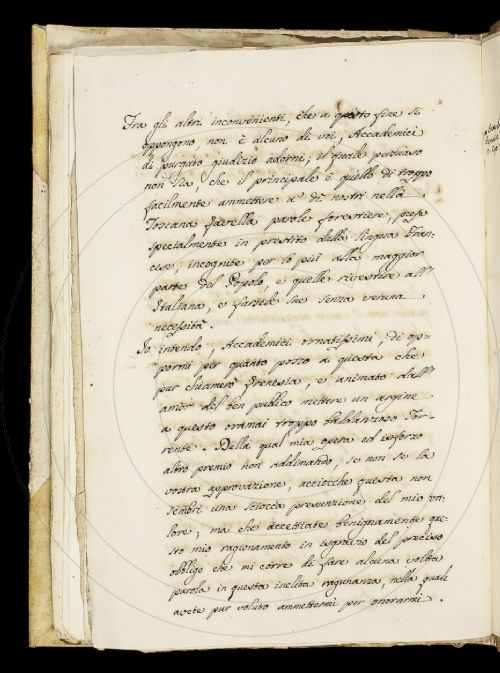 Tra gli altri inconvenienti, che a questo fine si
oppongono non è alcuno di voi, Accademici
di purgato giudizio adorni, il quale persuaso
non sia, che il principale è quello di troppo
facilmente ammettere a' dì nostri nella
Toscana favella parole forestiere, prese
specialmente in prestito dalla lingua Fran-
cese, incognite per lo più alla maggior
parte del Popolo, e quelle rivestire all'
Italiana, e farsele sue senza veruna
necessità.
Io intendo, Accademici ornatissimi, di op-
pormi per quanto posso a questa che
pur chiamerò frenesia, e animato dall'
amor del ben publico mettere un argine
a questo oramai troppo baldanzoso Tor-
rente. Della qual mia opera ed isforzo
altro premio non addimando, se non se la
vostra approvazione, acciocchè questa non
sembri una sciocca presunzione del mio va-
lore; ma che accettiate benignamente que-
sto mio ragionamento in isgravio del preciso
obbligo che mi corre di fare alcuna volta
parola in questa inclita ragunanza, nella quale
avete pur voluto ammettermi per onorarmi.